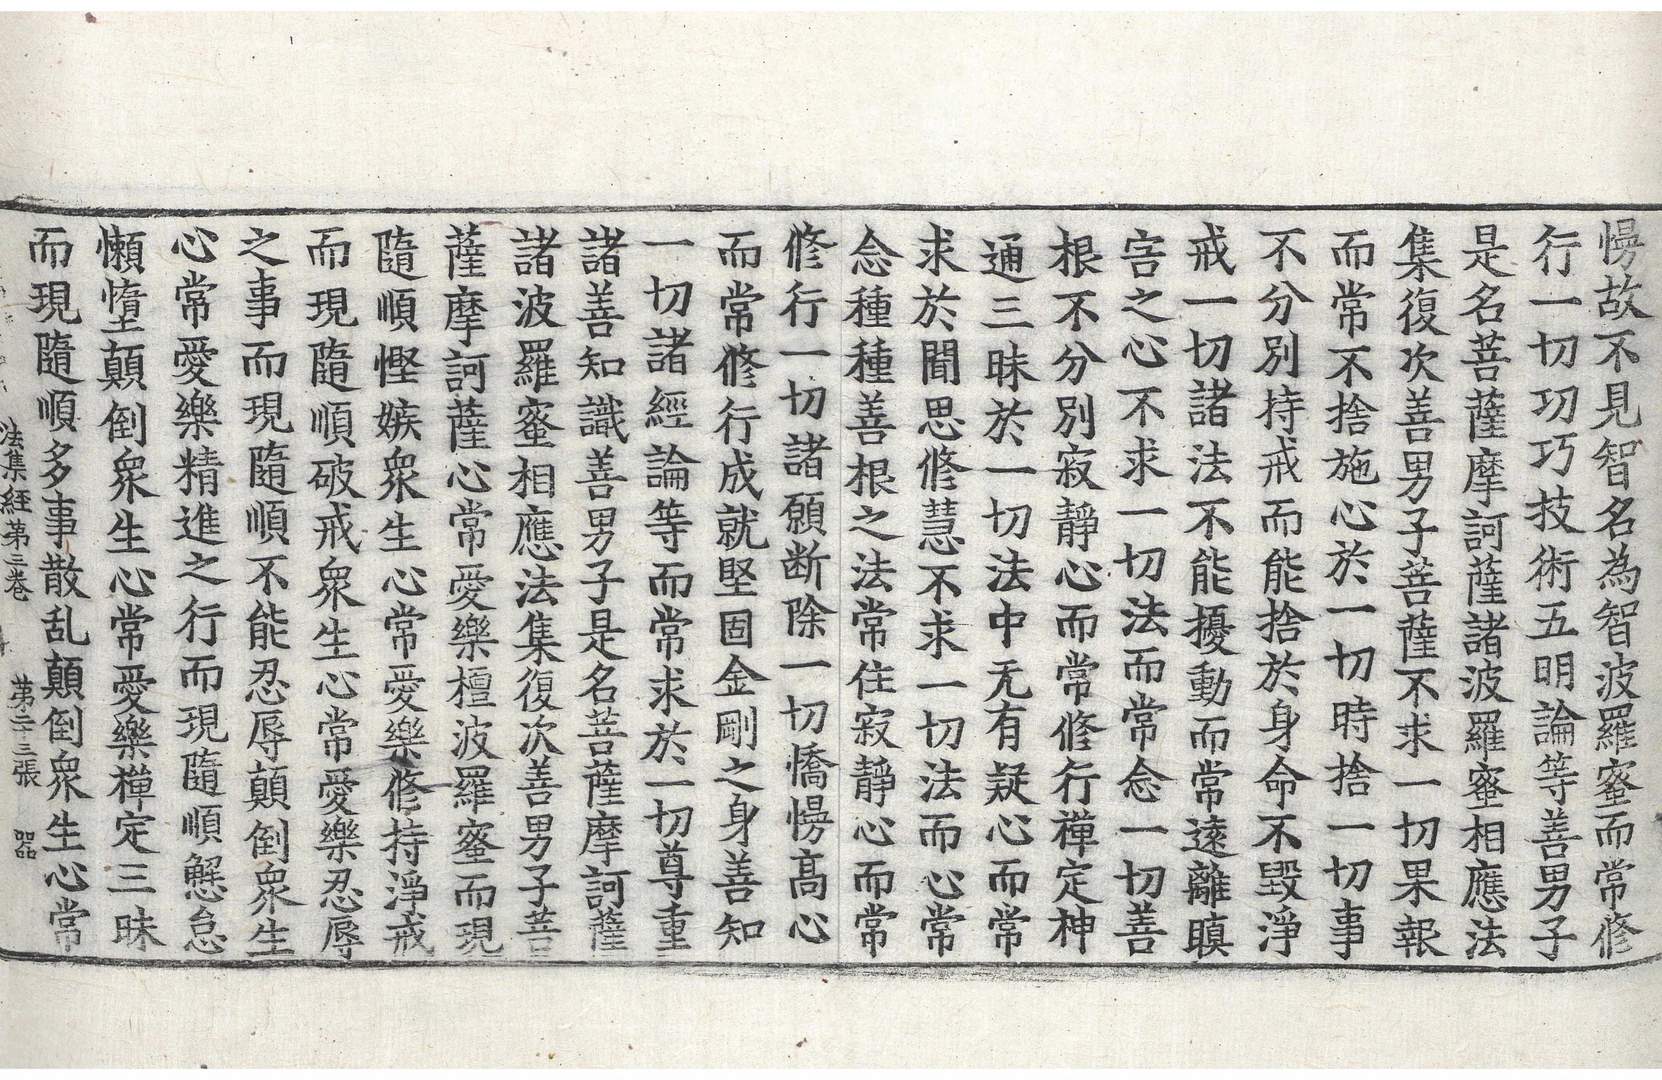 慢故不見智名為智波羅蜜而常修
行一切功巧技術五明論等善男子
是名菩薩摩訶薩諸波羅蜜相應法
集復次善男子菩薩不求一切果報
而常不捨施心於一切時捨一切事
不分別持戒而能捨於身命不毀淨
戒一切諸法不能擾動而常遠離瞋
害之心不求一切法而常念一切善
根不分別寂靜心而常修行禪定神
通三昧於一切法中无有疑心而常
求於聞思修慧不求一切法而心常
念種種善根之法常住寂靜心而常
修行一切諸願断除一切憍慢高心
而常修行成就堅固金剛之身善知
一切諸經論等而常求於一切尊重
諸善知識善男子是名菩薩摩訶薩
諸波羅蜜相應法集復次善男子菩
薩摩訶薩心常愛樂檀波羅蜜而現
隨順慳嫉衆生心常愛樂修持淨戒
而現隨順破戒衆生心常愛樂忍辱
之事而現隨順不能忍辱顛倒衆生
心常愛樂精進之行而現隨順懈怠
懶惰顛倒衆生心常愛樂禪定三昧
而現隨順多事散乱顛倒衆生心常
法集經第三卷 第二十三張 器